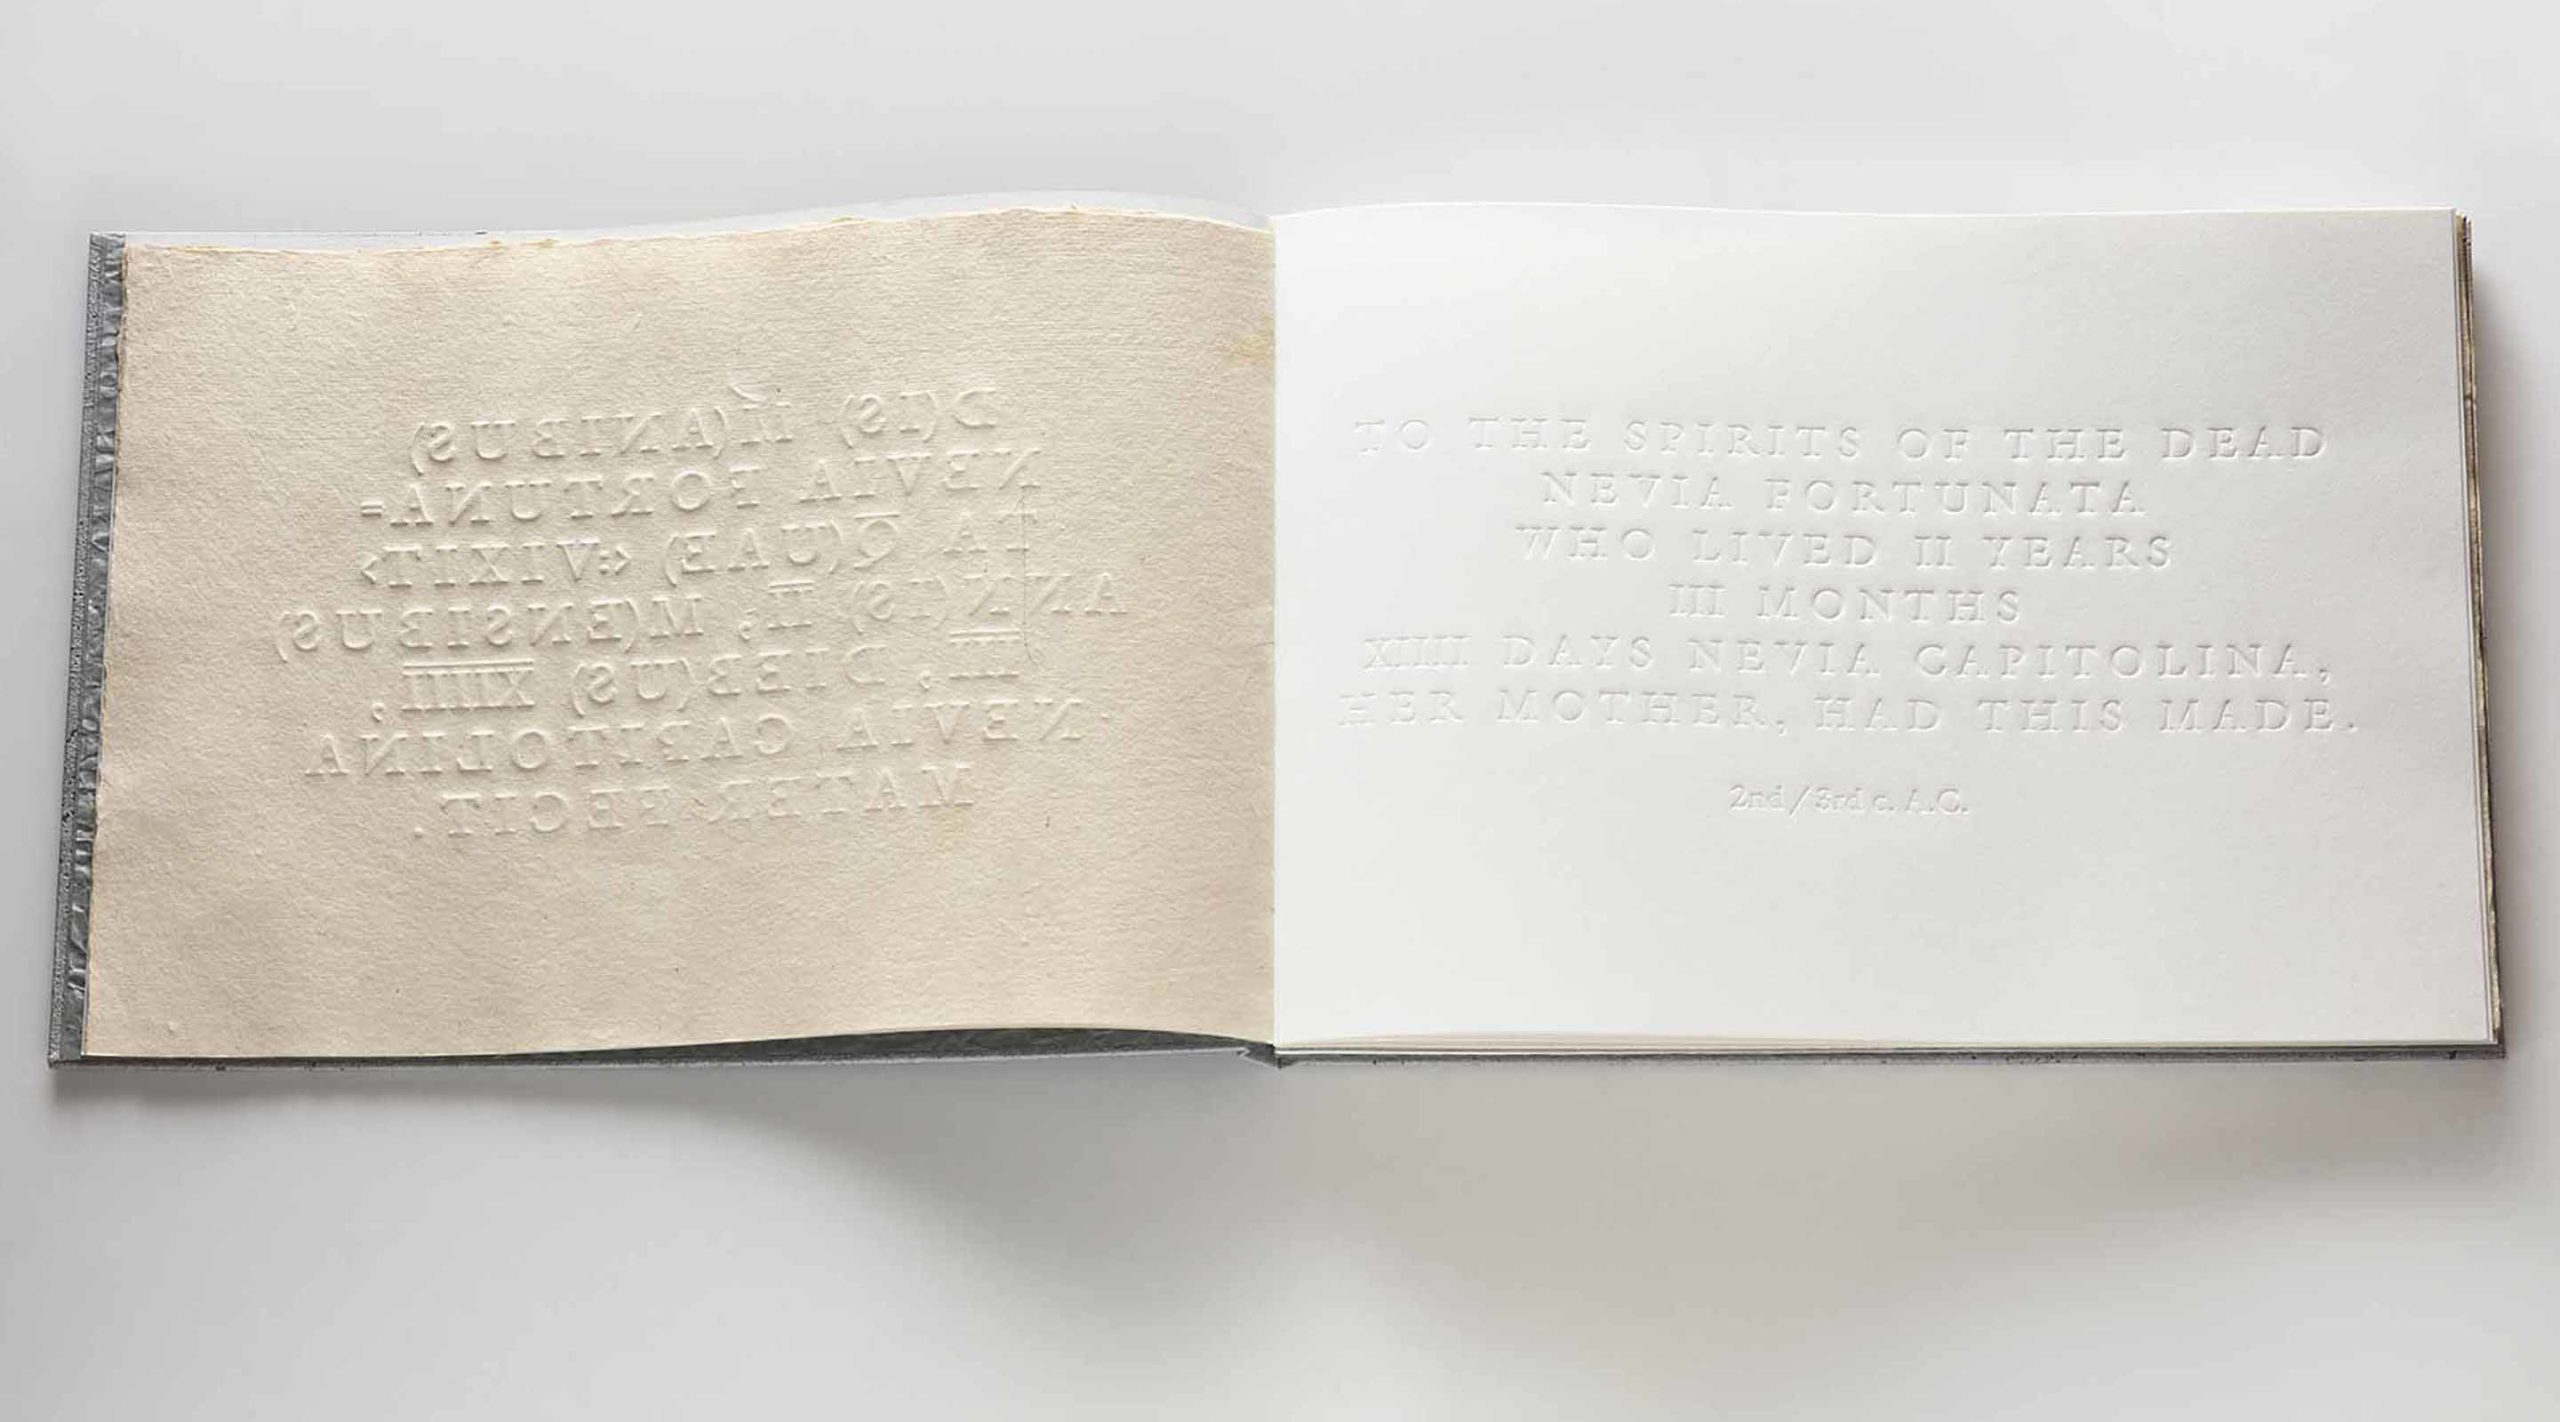 D(IS) M(ANIBUS)
NEVIA FORTUNA=
TA Q(UAE) <:VIXIT>
ANN(IS) II, M(ENSIBUS)
III, DIEB(US) XIIII,
NEVIA CAPITOLINA
MATER FECIT.
TO THE SPIRITS OF THE DEAD
NEVIA FORTUNATA
WHO LIVED II YEARS
III MONTHS
XIIII DAYS NEVIA CAPITOLINA,
HER MOTHER, HAD THIS MADE.
2nd/3rd c. A.C.